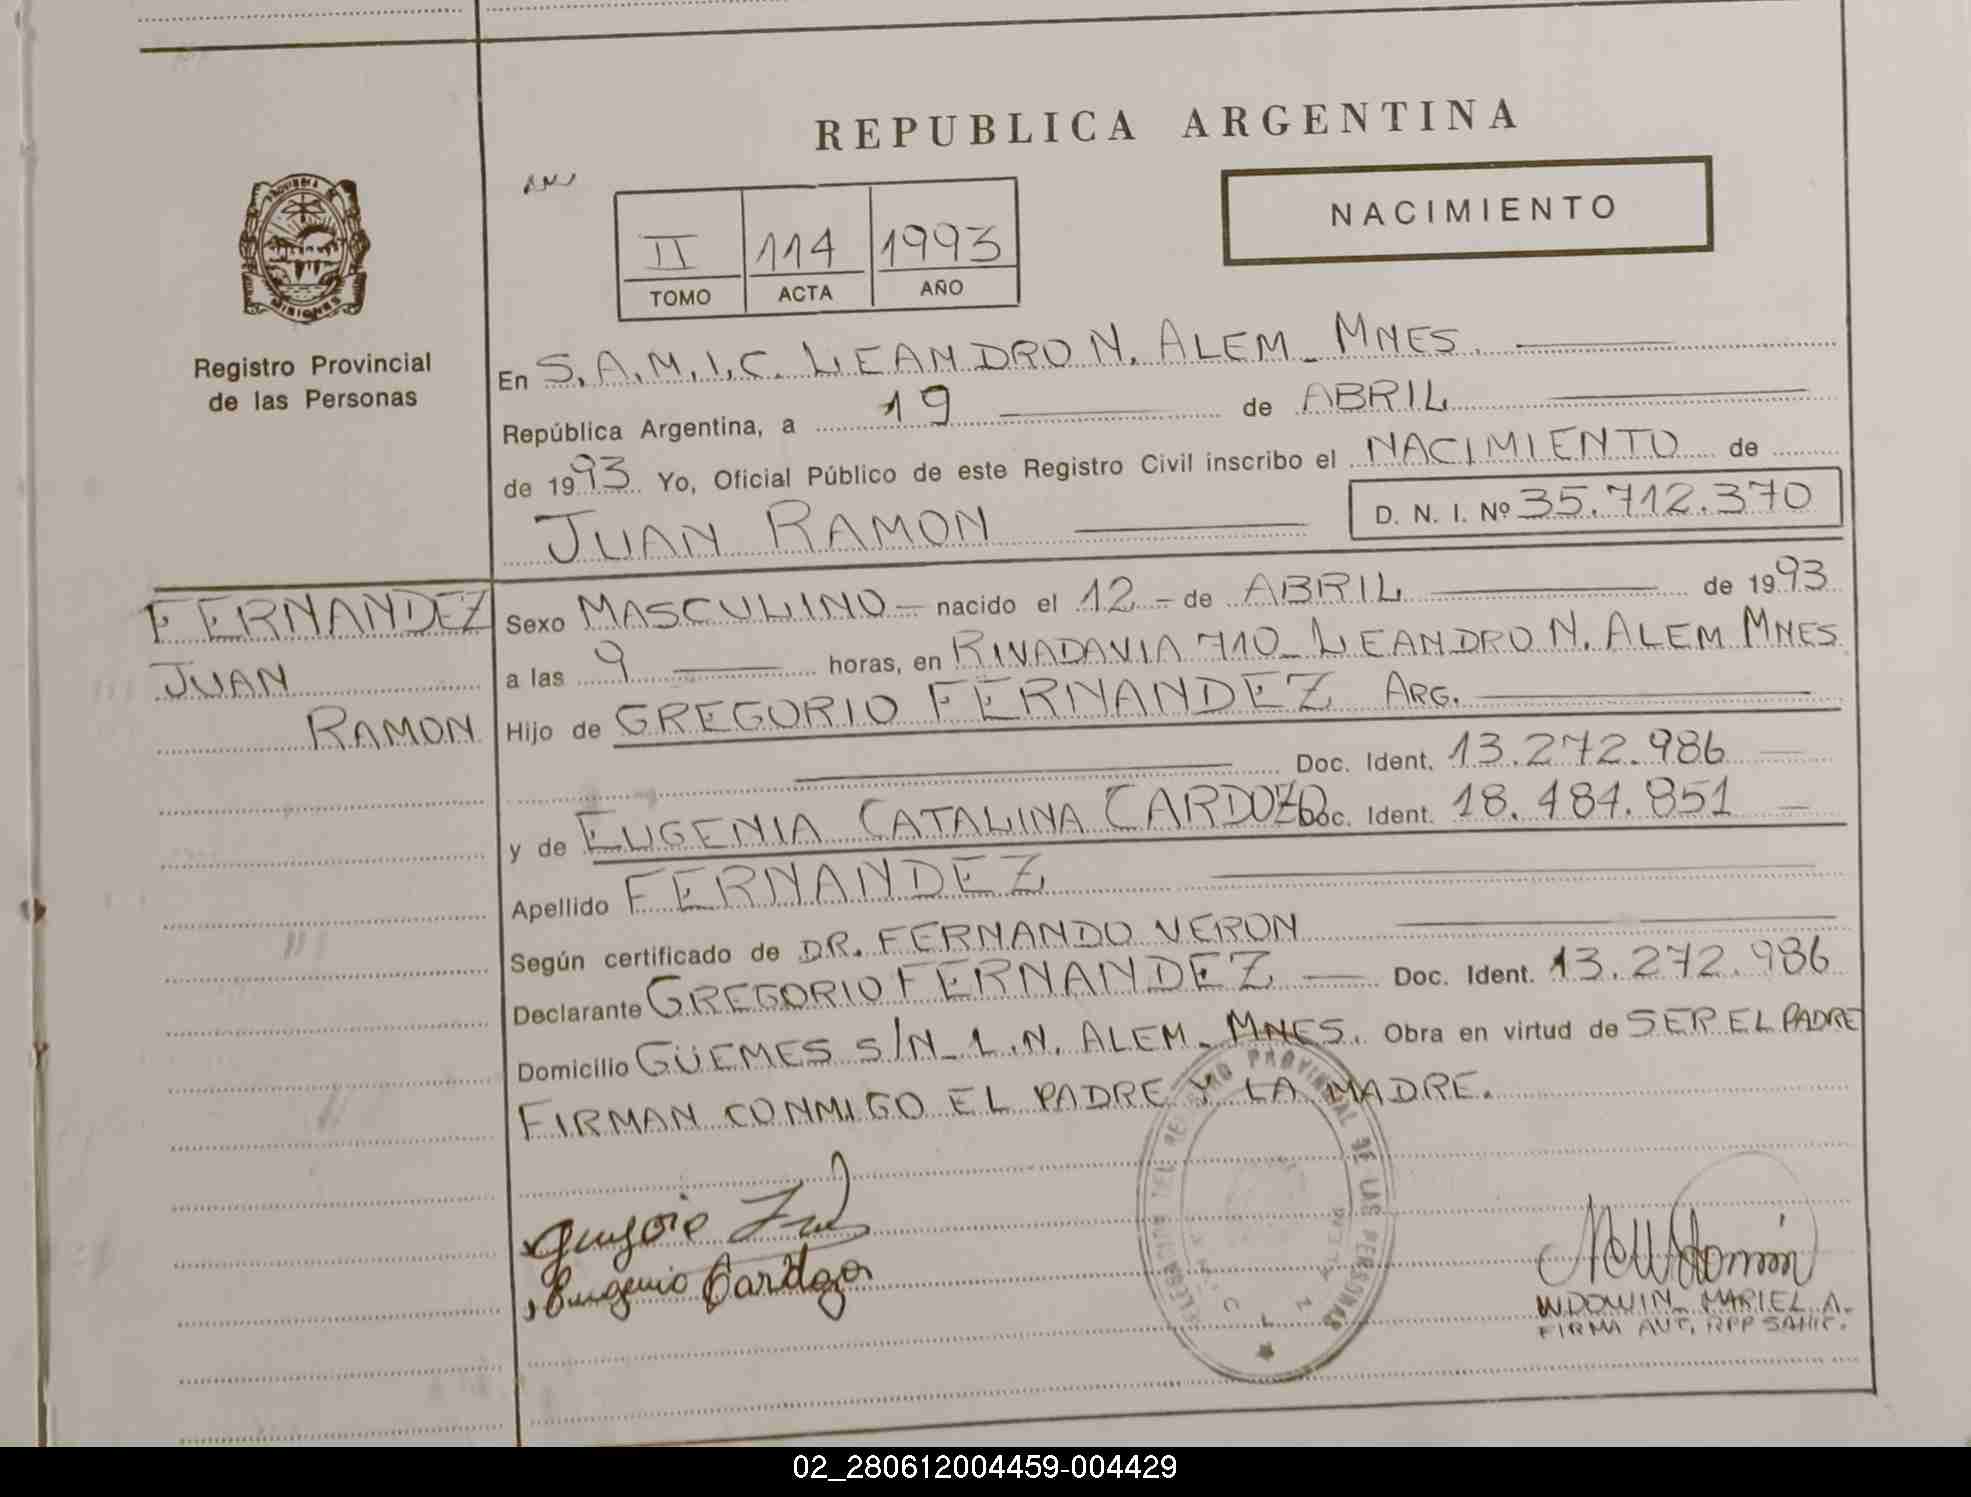 REPUBLICA ARGENTINA
NACIMIENTO
II 114 1993
TOMO ACTA AÑO
PROVINCIA DE MISIONES
Registro Provincial
de las Personas
En S.A.M.I.C. LEANDRO N. ALEM_ MNES.
República Argentina, a 19 de ABRIL
de 1993 Yo, Oficial Público de este Registro Civil inscribo el NACIMIENTO de
JUAN RAMON D. N. I. Nº 35.712.370
FERNANDEZ
JUAN
RAMON
Sexo MASCULINO - nacido el 12 - de ABRIL de 1993
a las 9 horas, en RIVADAVIA 710_ LEANDRO N. ALEM MNES
Hijo de GREGORIO FERNANDEZ ARG.
Doc. Ident. 13.272.986
y de EUGENIA CATALINA CARDOZO Doc. Ident. 18.484.851
Apellido FERNANDEZ
Según certificado de DR. FERNANDO VERON
Declarante GREGORIO FERNANDEZ Doc. Ident. 13.272.986
Domicilio GÜEMES S/N_ L.N. ALEM_ MNES. Obra en virtud de SER EL PADRE
FIRMAN CONMIGO EL PADRE Y LA MADRE.
DELEGACION DEL REGISTRO PROVINCIAL DE LAS PERSONAS
Eugenia Cardozo
WDOWIN_ MARIEL A.
FIRMA AUT. RPP SAMIC.
02_280612004459-004429